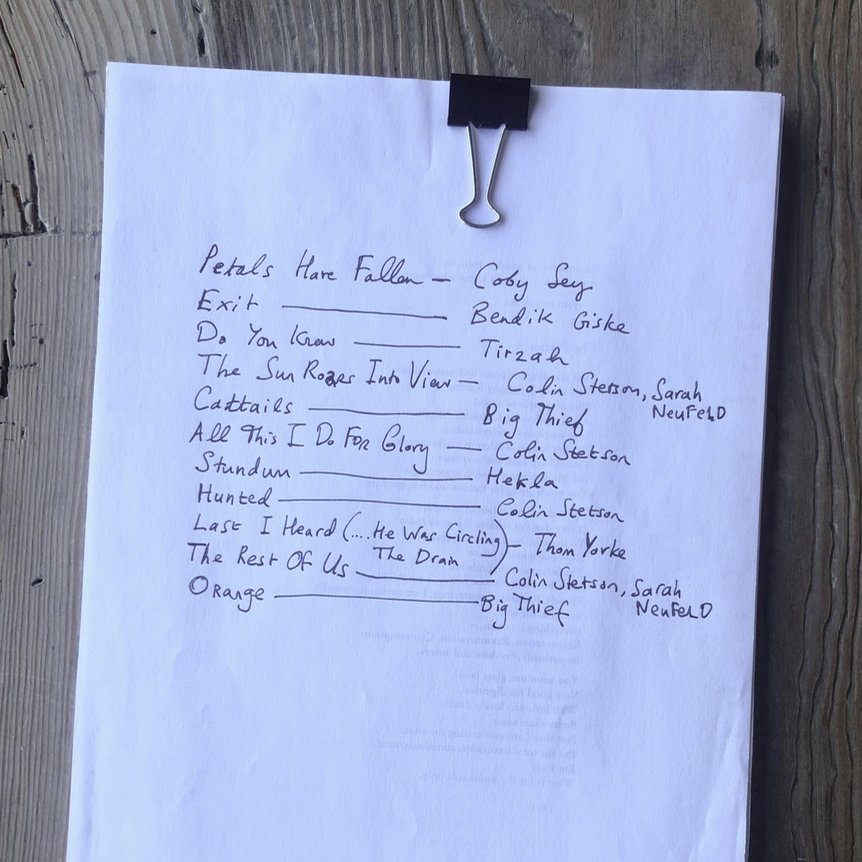 Petals Have Fallen — Coby Sey
Exit — Bendik Giske
Do You Know — Tirzah
The Sun Roars Into View — Colin Stetson, Sarah
Neufeld
Cattails — Big Thief
All This I Do For Glory — Colin Stetson
Stundum — Hekla
Hunted — Colin Stetson
Last I Heard (....He Was Circling
The Drain) — Thom Yorke
The Rest Of Us — Colin Stetson, Sarah
Neufeld
Orange — Big Thief